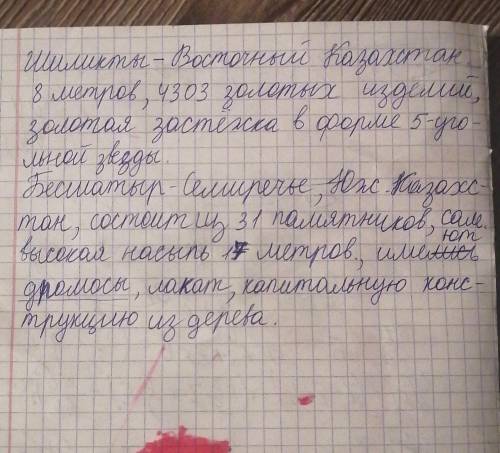 Шиликты - Восточный Казахстан
8 метров, 4303 золотых изделий,
золотая застёжка в форме 5-уго-
льной звезды.
Бесшатыр - Семиречье, Юж. Казахс-
тан, состоит из 31 памятников, сам.
высокая насыпь 17 метров, имеют
дромосы, лакат, капитальную конс-
трукцию из дерева.